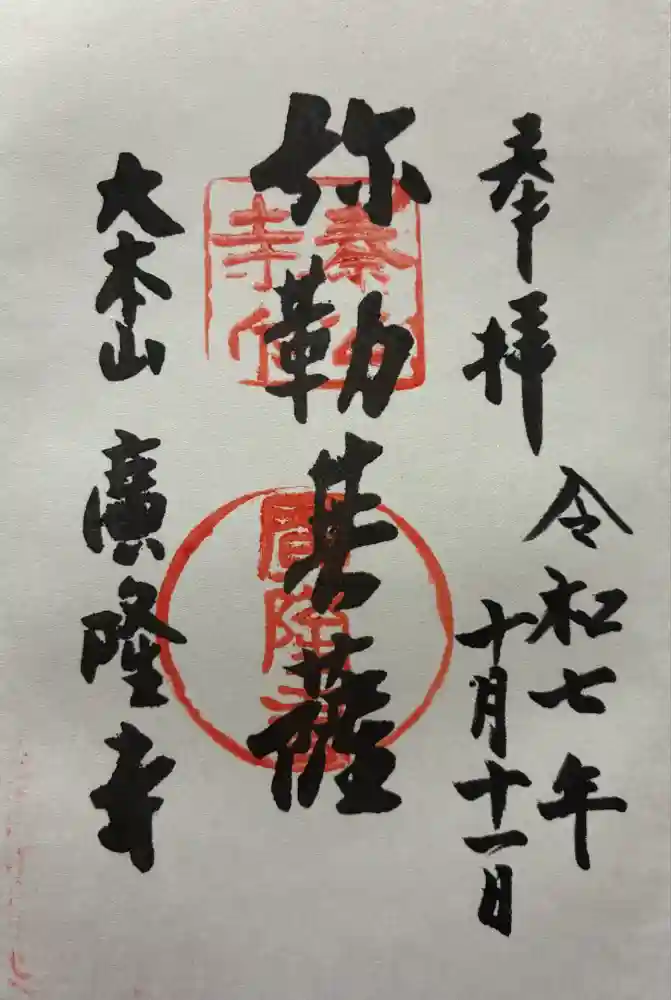 奉拝
令和七年
十月十一日
弥勒菩薩
大本山 廣隆寺
廣隆寺